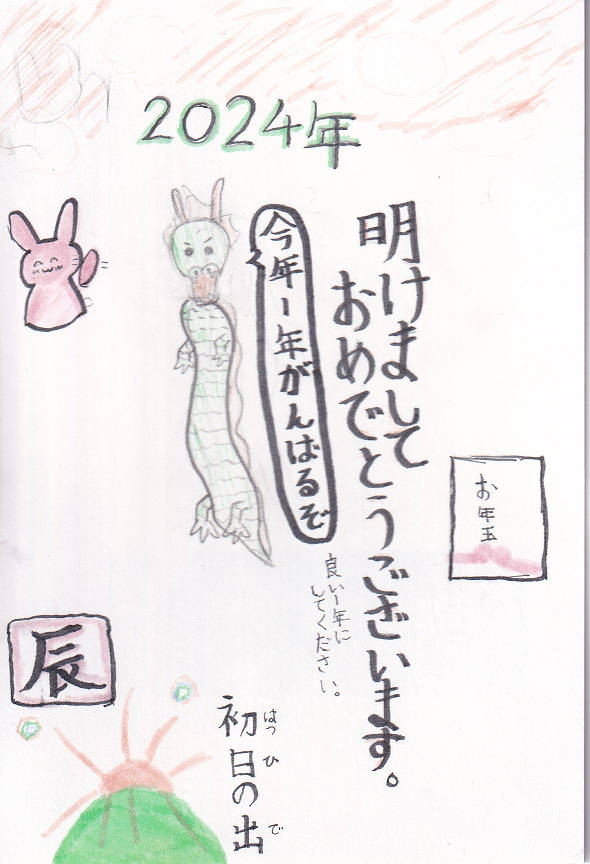 2024年
明けまして
おめでとうございます。
今年1年がんばるぞ
良い1年に
してください。
お年玉
辰
初日の出
はつひで